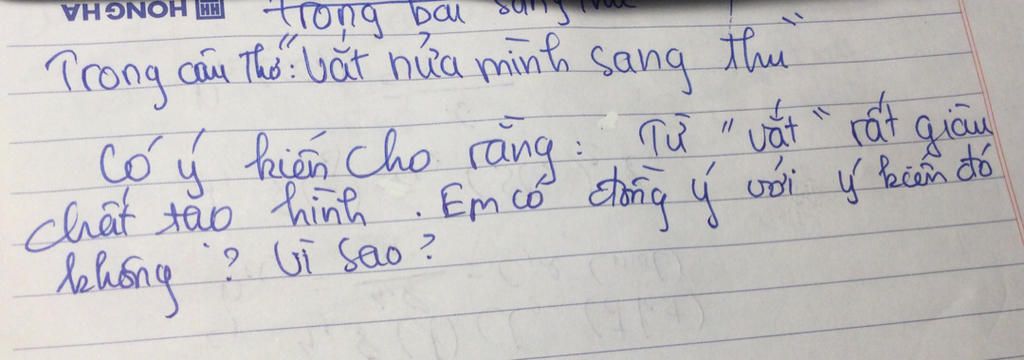 HH HONG HA trong bài sang thu
Trong câu thơ: "Vắt nửa mình sang thu"
Có ý kiến cho rằng: Từ "vắt" rất giàu
chất tạo hình. Em có đồng ý với ý kiến đó
không? Vì sao?